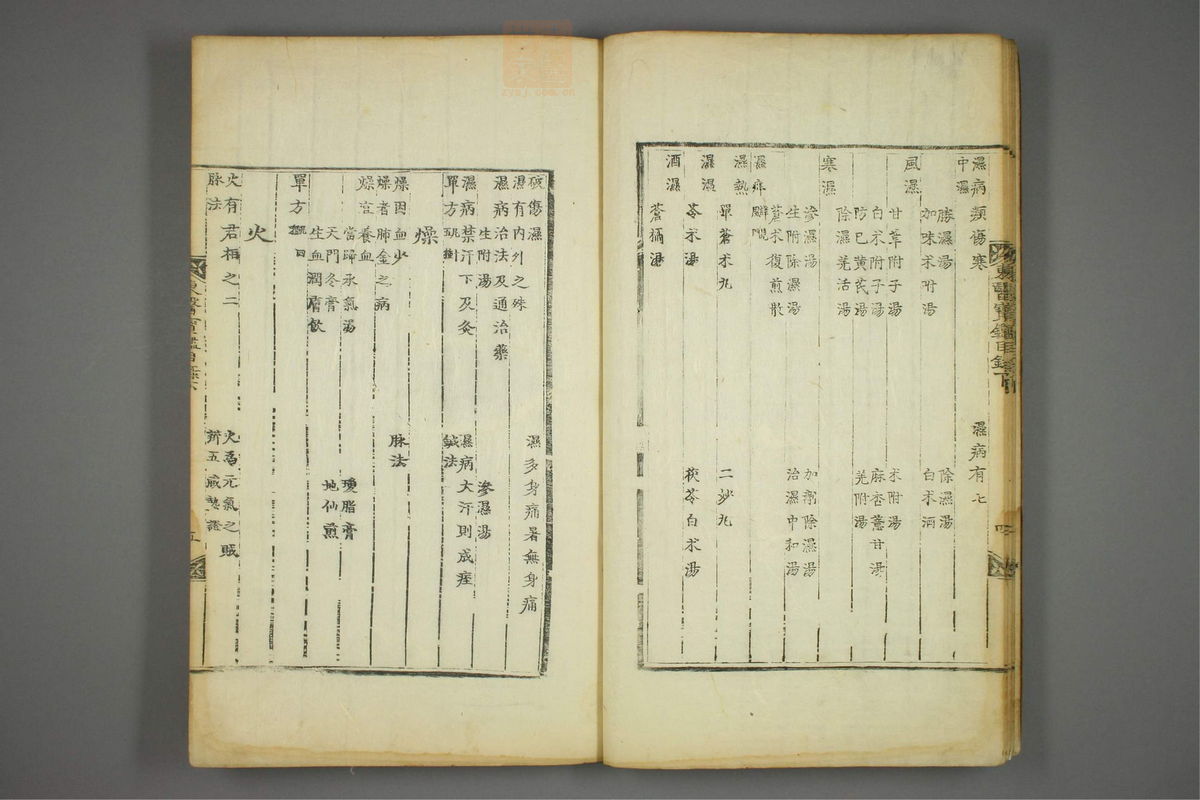 濕病類傷寒 濕病有七
中濕
勝濕湯 除濕湯
加味朮附湯 白朮酒
風濕
甘草附子湯 朮附湯
白朮附子湯 麻杏薏甘湯
防己黃芪湯 羌附湯
除濕羌活湯
寒濕
滲濕湯 加劑除濕湯
生附除濕湯 治濕中和湯
蒼朮復煎散
濕痺
濕熱
單蒼朮丸 二妙丸
濕濕
苓朮湯 茯苓白朮湯
酒濕
蒼橘湯
東醫寶鑑目錄下
破傷濕 濕多身痛暑無身痛
濕有內外之殊
濕病治法及通治藥
生附湯 滲濕湯
濕病禁汗下及灸 濕病大汗則成痓
單方 鍼法
燥
燥因血少 脉法
燥者肺金之病
燥宜養血
當歸承氣湯 瓊脂膏
天門冬膏 地仙煎
生血潤膚飮
單方
火
火有君相之二 火爲元氣之賊
脉法 辨五臟熱證